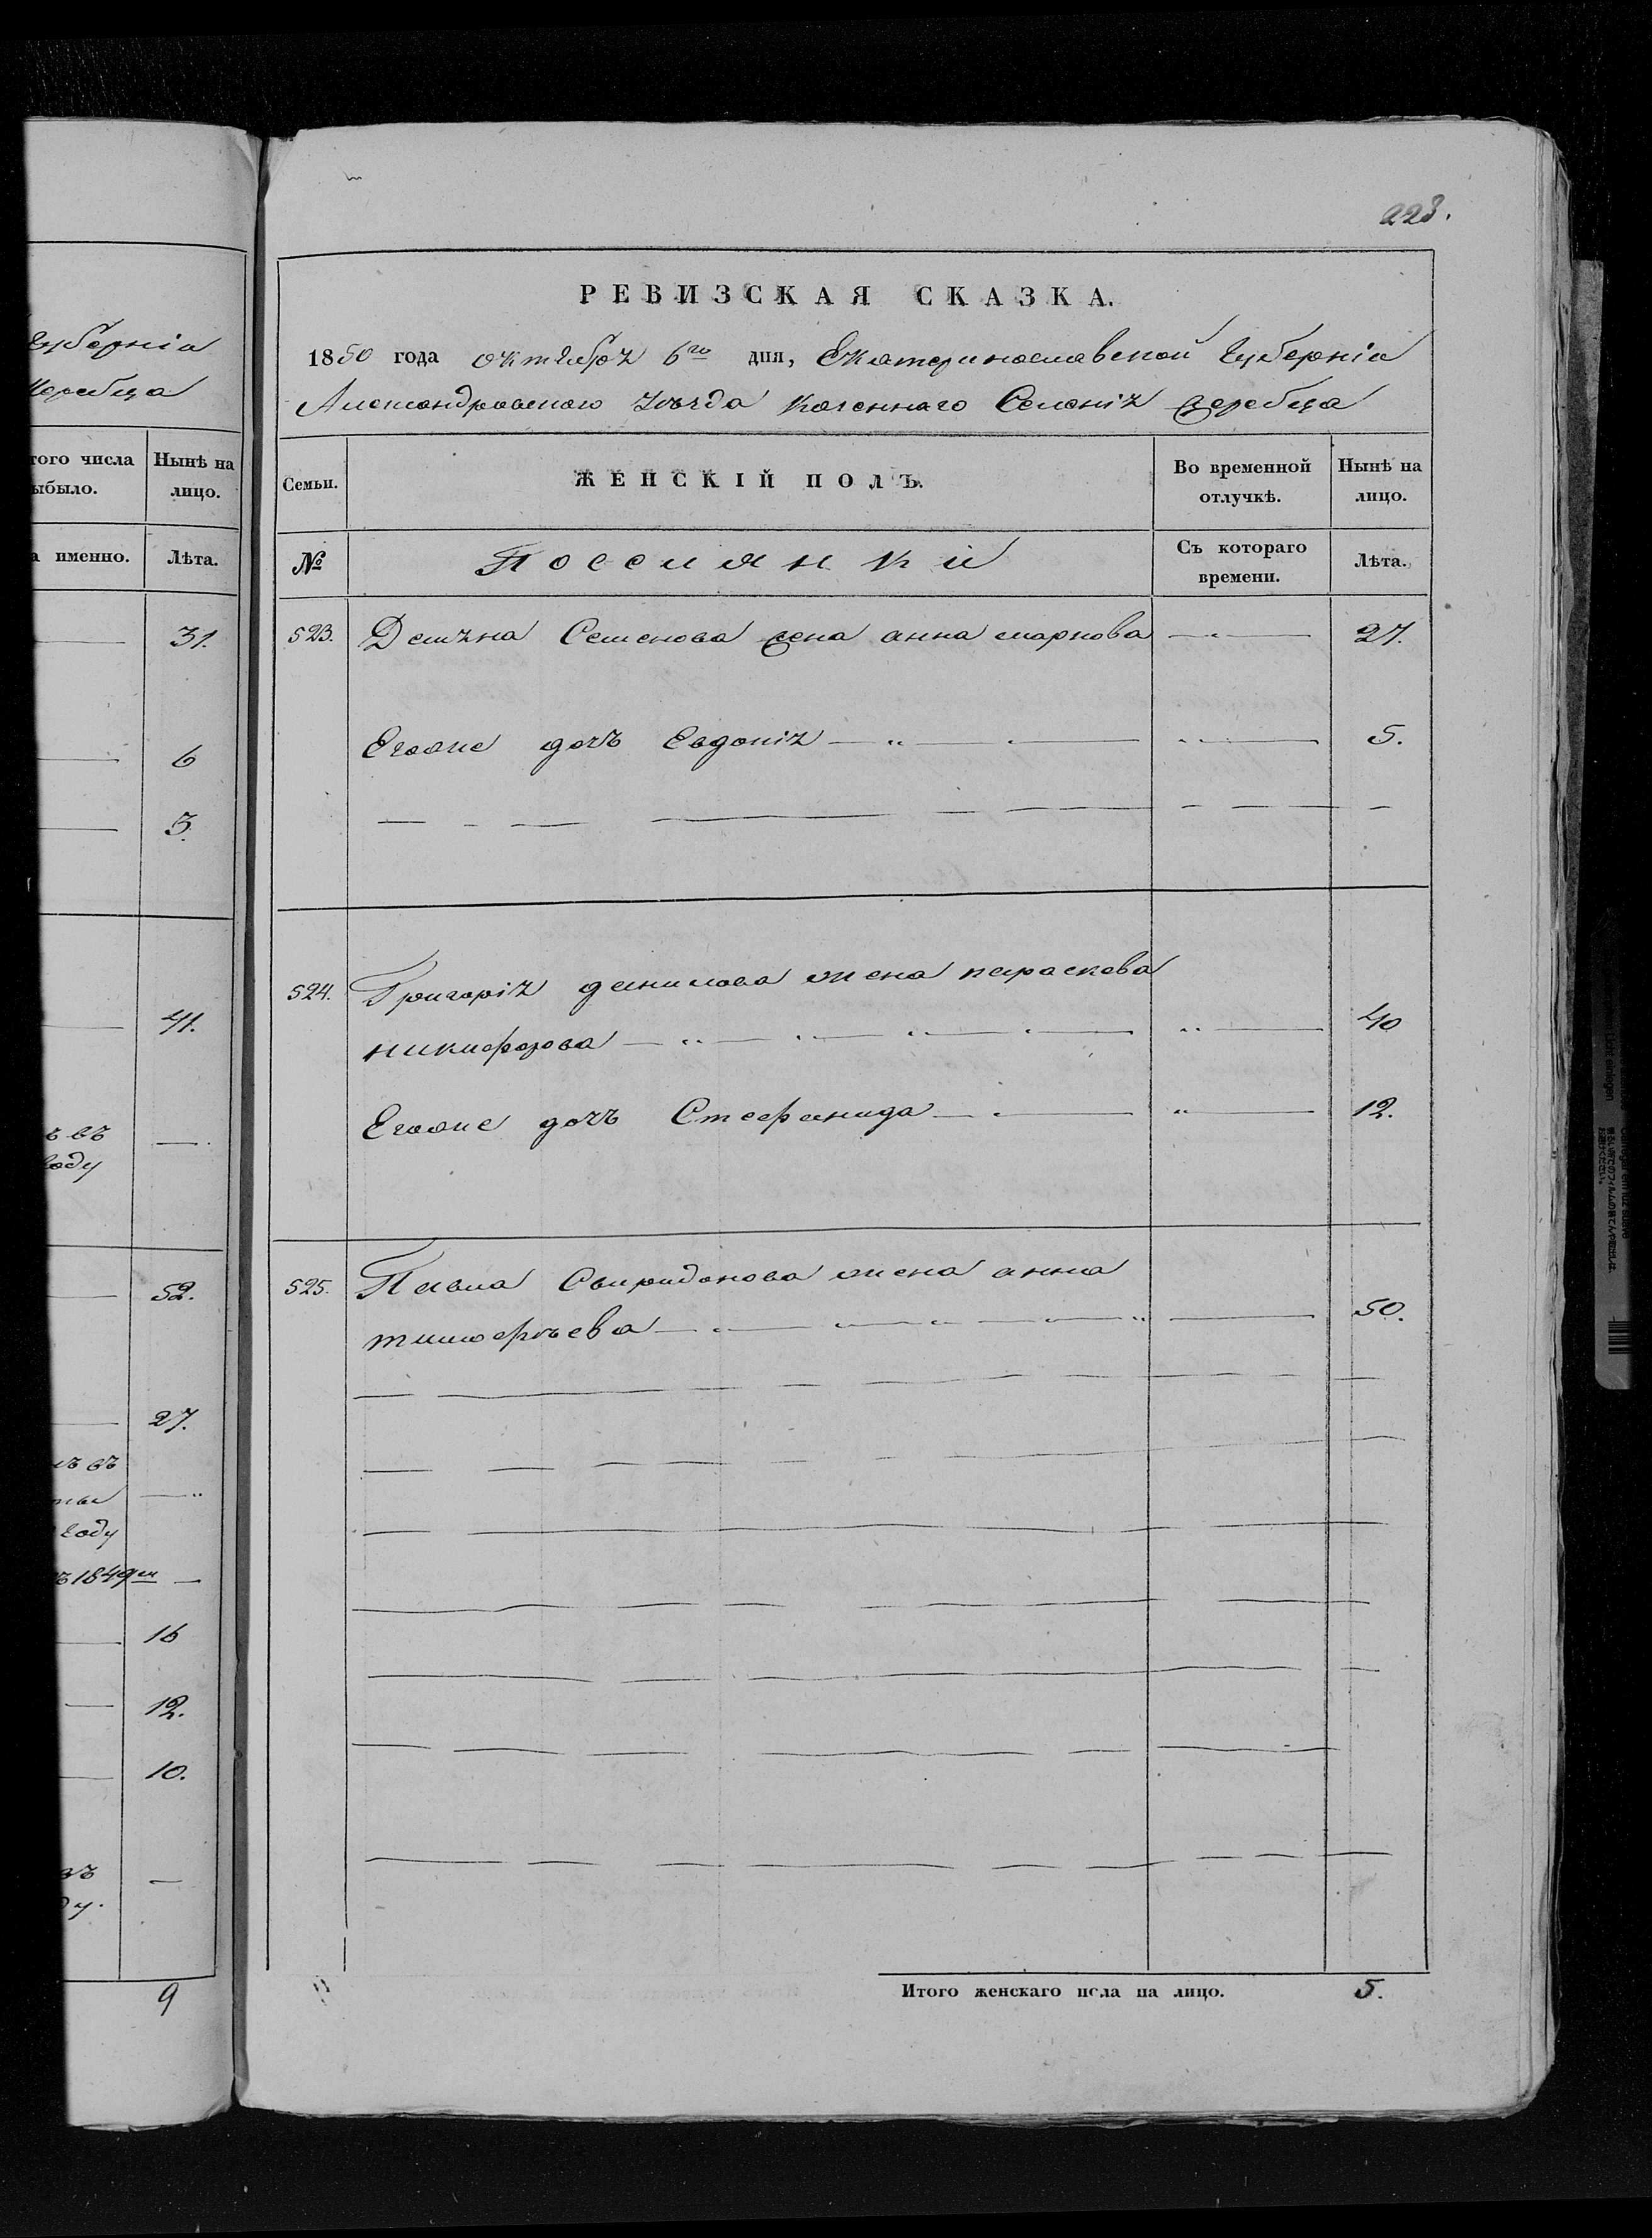 губерніи
Жеребца
того числа
ыбыло.
Нынѣ на
лицо.
а именно.
Лѣта.
31.
6
3.
41.
ъ въ
году
52.
27.
въ
году
ъ 1849мъ
16
12.
10.
въ
ду.
9
223.
РЕВИЗСКАЯ СКАЗКА.
1850 года октября 6го дня, Екатеринославской губерніи
Александровскаго уѣзда казеннаго Селенія Жеребца
Семьи.
ЖЕНСКІЙ ПОЛЪ.
Во временной
отлучкѣ.
Нынѣ на
лицо.
№
Съ котораго
времени.
Лѣта.
523. Демяна Семенова жена анна маркова 27.
Еговже дочъ Евдокія 5.
524. Григорія данилова жена параскева
никифорова 40
Еговже дочъ Стефанида 12.
525. Павла Свиридонова жена анна
тимофѣева 50.
Итого женскаго пола на лицо. 5.